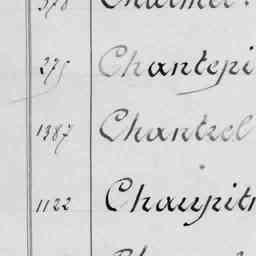 378 Charmet.
275 Chantepi
1387 Chantrel
1122 Chaupitr